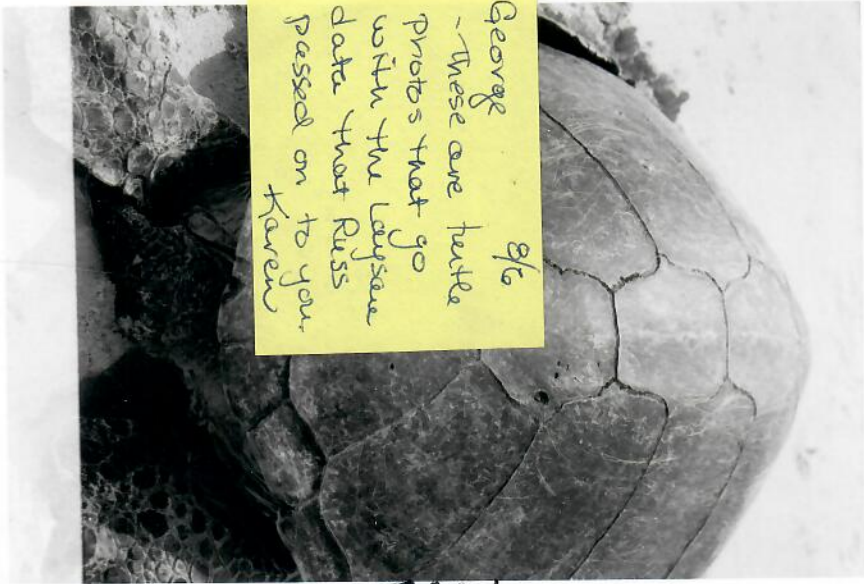 George 8/6
- These are turtle
photos that go
with the Laysan
data that Russ
passed on to you.
Karen